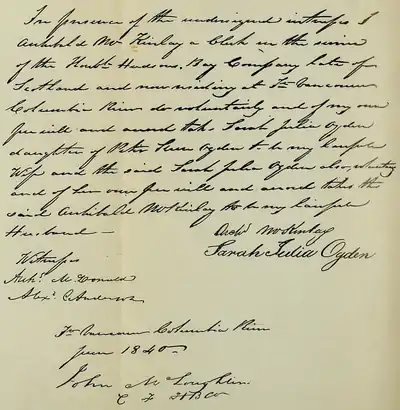 In presence of the undersigned witness I
Archibald Mc Kinlay a Clerk in the service
of the Honble Hudsons Bay Company late of
Scotland and now residing at Ft Vancouver
Columbia River do voluntarily and of my own
free will and accord take Sarah Julia Ogden
daughter of Peter Skeen Ogden to be my lawful
Wife and the said Sarah Julia Ogden also
and of her own free will and accord takes the
said Archibald McKinlay to be my lawful
Husband —
Archd McKinlay
Sarah Julia Ogden
Witness
Archd McDonald
Alexr C Anderson
Ft Vancouver Columbia River
June 1840
John McLoughlin
C F HBCo